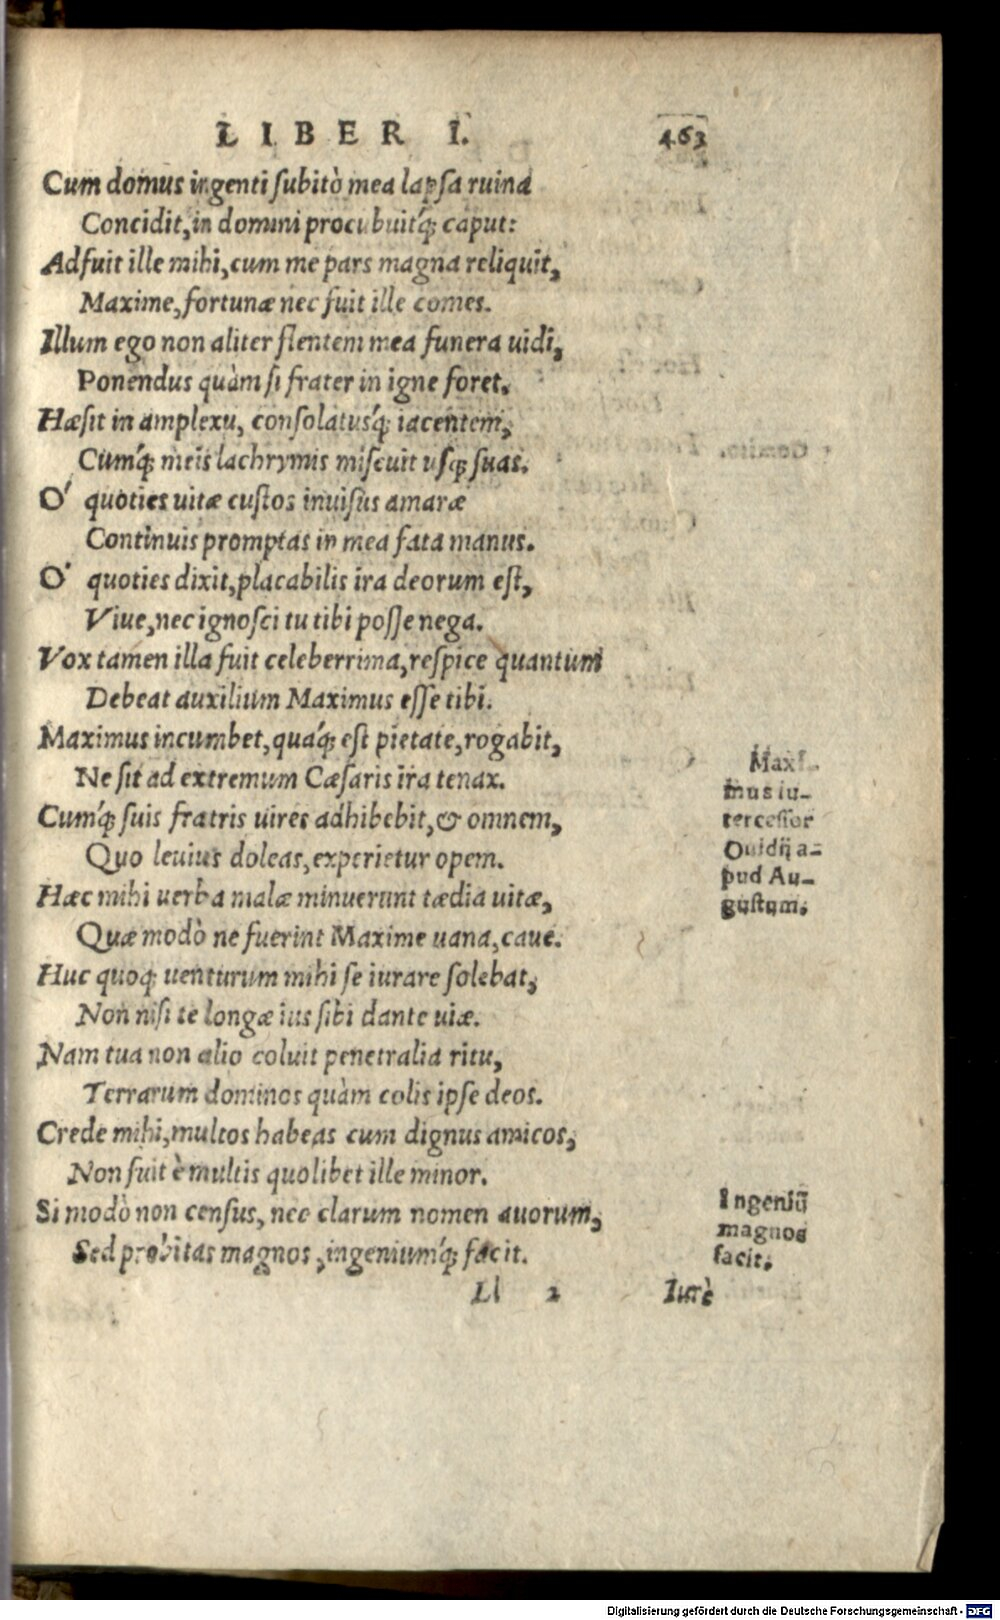 LIBER I. 463
Cum domus ingenti subitò mea lapsa ruina
Concidit, in domini procubuitq́; caput:
Adfuit ille mihi, cum me pars magna reliquit,
Maxime, fortunæ nec fuit ille comes.
Illum ego non aliter flentem mea funera uidi,
Ponendus quàm si frater in igne foret.
Hæsit in amplexu, consolatusq́; iacentem,
Cumq́; meis lachrymis miscuit usq; suas.
O' quoties uitæ custos inuisus amaræ
Continuis promptas in mea fata manus.
O' quoties dixit, placabilis ira deorum est,
Viue, nec ignosci tu tibi posse nega.
Vox tamen illa fuit celeberrima, respice quantum
Debeat auxilium Maximus esse tibi.
Maximus incumbet, quáq; est pietate, rogabit,
Ne sit ad extremum Cæsaris ira tenax.
Cumq́; suis fratris uires adhibebit, & omnem,
Quo leuius doleas, experietur opem.
Hæc mihi uerba malæ minuerunt tædia uitæ,
Quæ modò ne fuerint Maxime uana, caue.
Huc quoq; uenturum mihi se iurare solebat,
Non nisi te longæ ius sibi dante uiæ.
Nam tua non alio coluit penetralia ritu,
Terrarum dominos quàm colis ipse deos.
Crede mihi, multos habeas cum dignus amicos,
Non fuit è multis quolibet ille minor.
Si modò non census, nec clarum nomen auorum,
Sed probitas magnos, ingeniumq́; facit.
Maxi-
mus in-
tercessor
Ouidij a-
pud Au-
gustum.
Ingeniū
magnos
facit.
Ll 2 Iurè
Digitalisierung gefördert durch die Deutsche Forschungsgemeinschaft - DFG